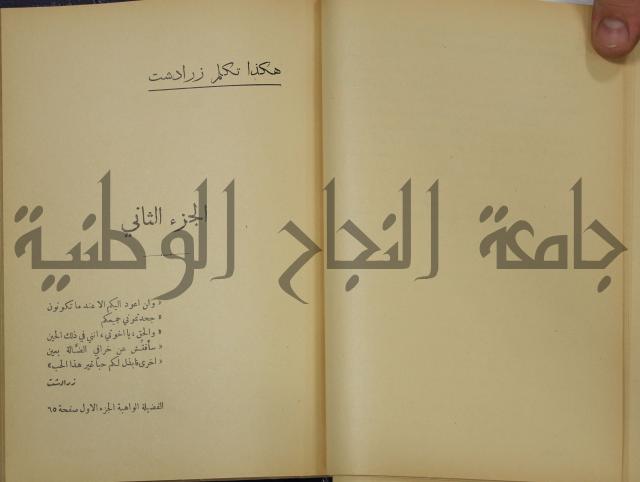 هكذا تكلم زرادشت
الجزء الثاني
جامعة النجاح الوطنية
« ولن اعود اليكم الا عند ما تكونون
« جحدتموني جميعكم
« والحق ، يا اخوتي ، انني في ذلك الحين
« سأفتش عن خرافي الضالة بعين
« اخرى فابذل لكم حباً غير هذا الحب »
زرادشت
الفضيلة الواهبة الجزء الاول صفحة ٦٥